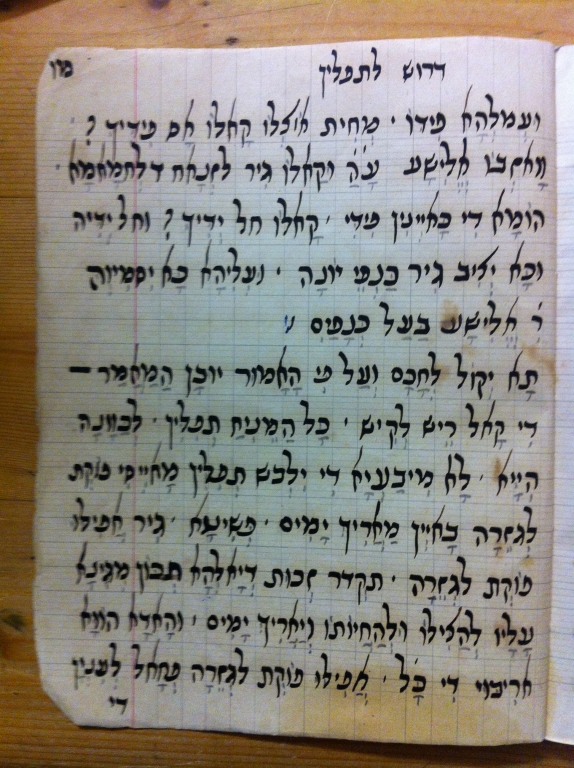 דרוש לתפלין
ועמולהא פידו · מחית איצלו קאלו אס פידיך ?
וואזבו אלישע ע״ה וקאלו גיר לזנאח דלחמאמא ·
הומא די כאיינין פידי · קאלו חל ידיך ? וחל ידיה
וכא יציב גיר כנפי יונה · ועליהא כא יסמיוה
ר׳ אלישע בעל כנפים
תא יקול לחכם ועל פי האמור יובן המאמר —
די קאל ריש לקיש · כל המניח תפלין · לכוונה
הייא · לא מיבעיא די ילבש תפלין פוקת
לגזרה באיין מאריך ימים · פשיטא · גיר אפילו
פוקת לגזרה · תקדר זכות דיאלהא תכון מגינא
עליו להצילו ולהחיותו ויאריך ימים · והאדא הווא
די כל · אפילו פוקת לגזרה פחאל לענין
די